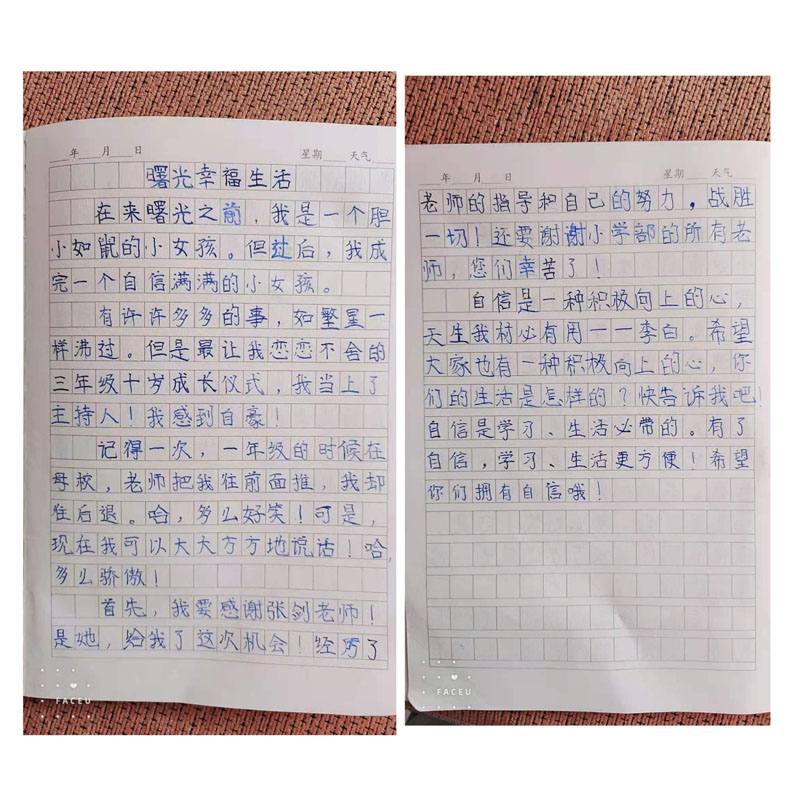 年 月 日 星期 天气
曙光幸福生活
在来曙光之前，我是一个胆
小如鼠的小女孩。但过后，我成
完一个自信满满的小女孩。
有许许多多的事，如繁星一
样沸过。但是最让我恋恋不舍的
三年级十岁成长仪式，我当上了
主持人！我感到自豪！
记得一次，一年级的时候在
母校，老师把我往前面推，我却
往后退。哈，多么好笑！可是，
现在我可以大大方方地说话！哈，
多么骄傲！
首先，我要感谢张剑老师！
是她，给我了这次机会！经历了
FACEU
年 月 日 星期 天气
老师的指导和自己的努力，战胜
一切！还要谢谢小学部的所有老
师，您们幸苦了！
自信是一种积极向上的心，
天生我材必有用——李白。希望
大家也有一种积极向上的心，你
们的生活是怎样的？快告诉我吧！
自信是学习、生活必带的。有了
自信，学习、生活更方便！希望
你们拥有自信哦！
FACEU